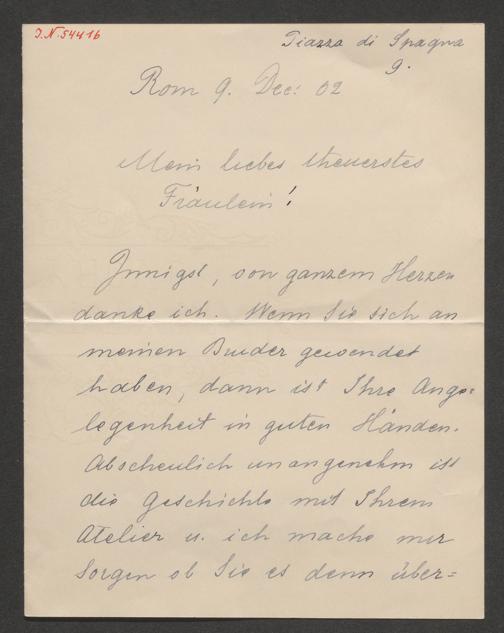 J.N. 54416
Piazza di Spagna
9.
Rom 9. Dec: 02
Mein liebes theuerstes
Fräulein!
Innigst, von ganzem Herzen
danke ich. Wenn Sie sich an
meinen Bruder gewendet
haben, dann ist Ihre Ange=
legenheit in guten Händen.
Abscheulich unangenehm ist
die Geschichte mit Ihrem
Atelier u. ich mache mir
Sorgen ob Sie es denn über=